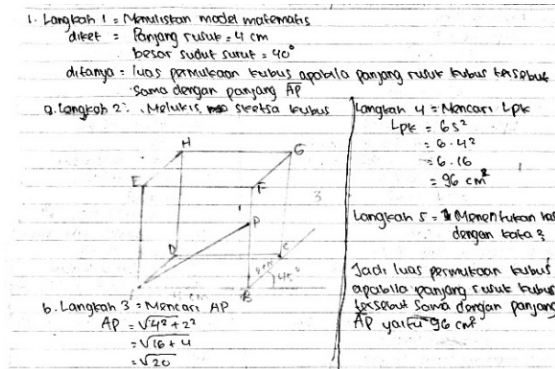 1. Langkah 1 = Menuliskan model matematis
diket = Panjang rusuk = 4 cm
besar sudut surut = 40°
ditanya = luas permukaan kubus apabila panjang rusuk kubus tersebut
sama dengan panjang AP
a. Langkah 2 = Melukis sketsa kubus
H
G
E
F
P
3
D
C
45°
B
b. Langkah 3 = Mencari AP
AP = √4² + 2²
= √16 + 4
= √20
Langkah 4 = Mencari Lpk
Lpk = 6s²
= 6.4²
= 6.16
= 96 cm²
Langkah 5 = Menentukan
dengan kata²
Jadi luas permukaan kubus
apabila panjang rusuk kubus
tersebut sama dengan panjang
AP yaitu 96 cm²